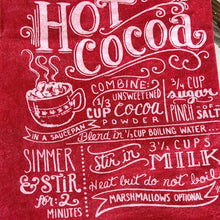 HOT
COCOA
COMBINE:
1/3 UNSWEETENED
CUP cocoa
POWDER
3/4 CUP
sugar
PINCH OF SALT
IN A SAUCEPAN
Blend in 1/2 CUP BOILING WATER
SIMMER
& STIR
for 2
MINUTES
Stir in 3 1/2 CUPS
MILK
Heat but do not boil
MARSHMALLOWS OPTIONAL